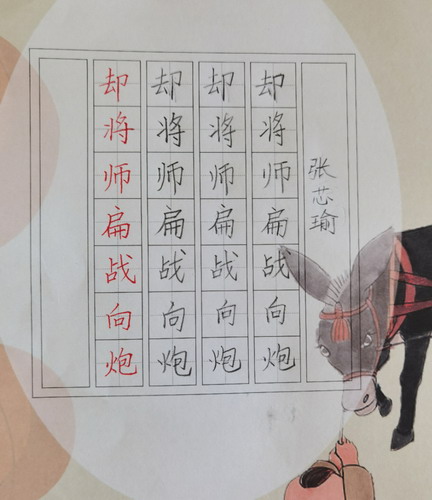 张芯瑜
却将师扁战向炮
却将师扁战向炮
却将师扁战向炮
却将师扁战向炮